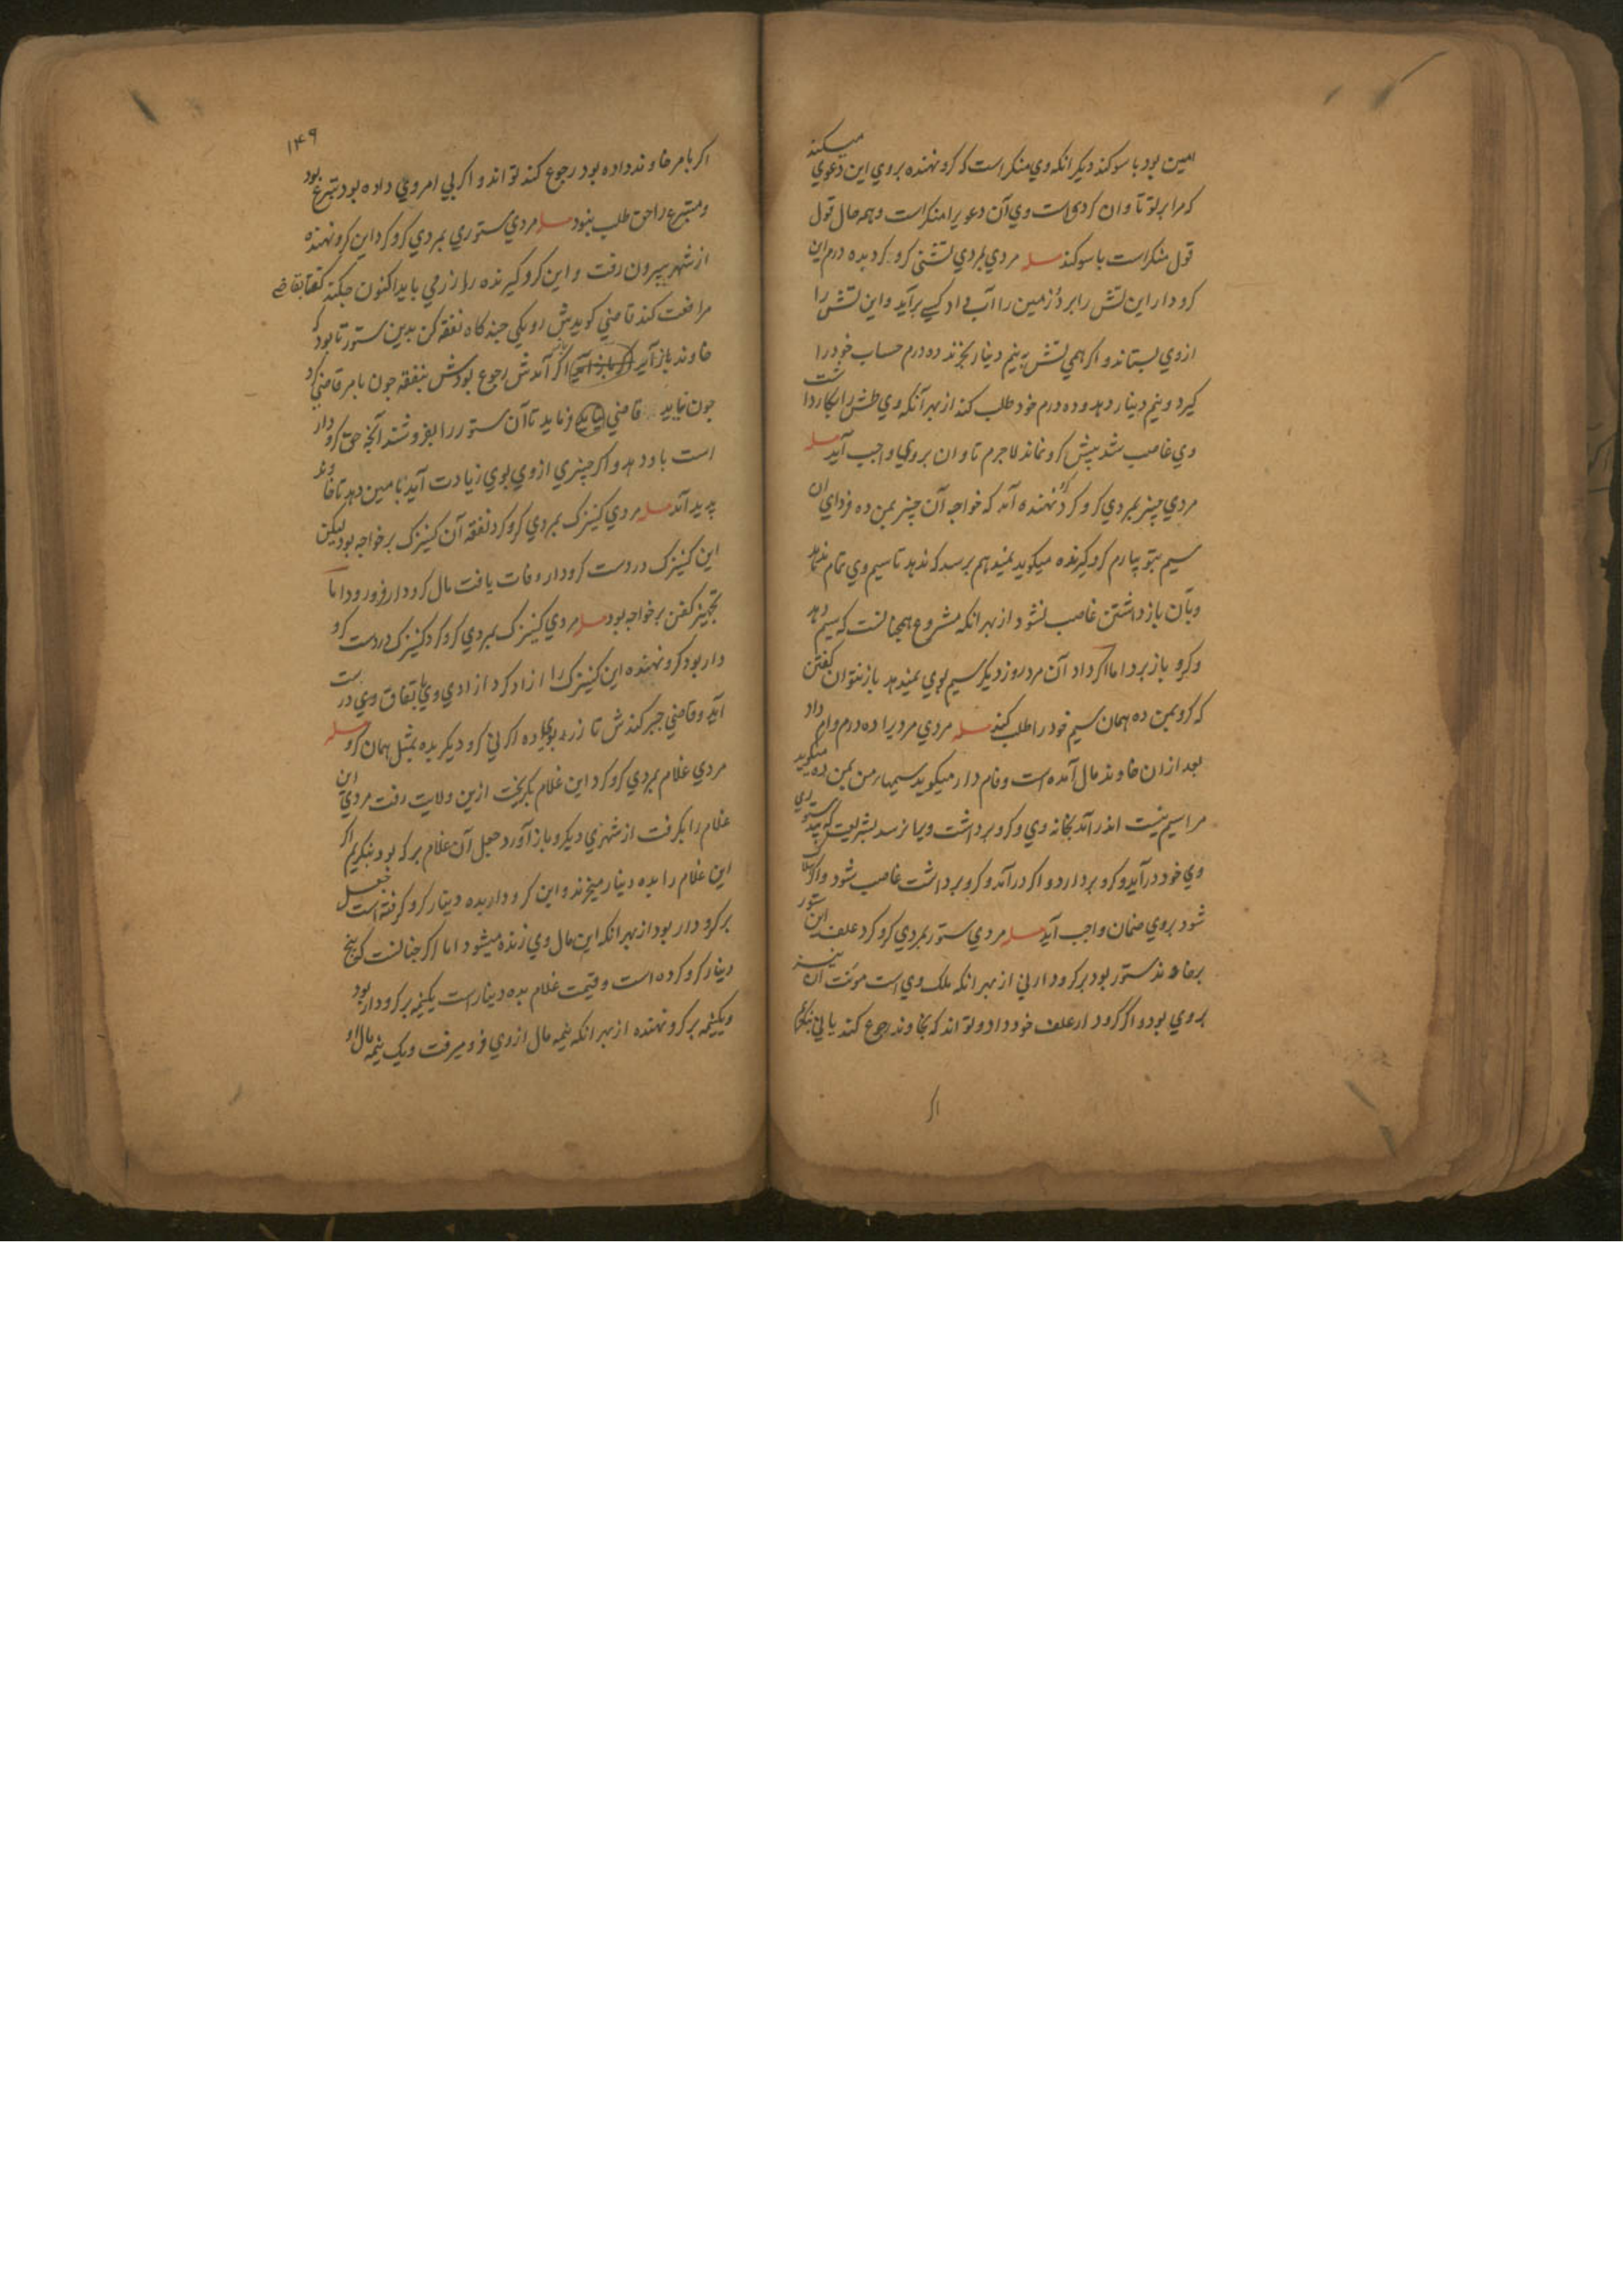 امین بود با سوکند دیکر انکه وي منکر است که کرو نهنده بروي این دعوي میکند
که مرا بر تو تاوان کردی است وي آن دعویرا منکر است و بهمه حال قول
قول منکر است با سوکند مسله مردي بمردي تشتی کرو کرد بده درم این
کرودار این تشش را برد و زمین را آب داد کسی برآید و این تشش را
ازوي بستاند و اکر همی تشش به نیم دینار بخرند ده درم حساب خود را
کیرد و نیم دینار دهد و ده درم خود طلب کند از بهر آنکه وي طشش را بکار داشت
وي غاصب شد پیش کرو نماند لاجرم تاوان بر وي واجب آید مسله
مردي چیز بمردي کرو کرد نهنده آمد که خواجه آن چیز بمن ده فرداي ان
سیم بتو سپارم کرو کیرنده میکوید نمیدهم برسد که ندهد تا سیم وي تمام ندهد
وبآن باز داشتن غاصب نشود از بهر انکه مشروع همچنانست که سیم دهد
و کرو باز برد اما اکر داد آن مرد روز دیکر سیم بوي نمیدهد باز نتوان کفتن
که کرو بمن ده همان سیم خود را طلب کند مسله مردي مردیرا ده درم وام داد
بعد ازان خاوند مال آمده است و وام دار میکوید سیمهاء من بمن ده میکوید
مرا سیم نیست اندر آمد بخانه وي و کرو برداشت ویرا نرسد بشریعت که بیدستوري
وي خود درآید و کرو بردارد و اکر درآمد و کرو برداشت غاصب شود و اکر هلاک
شود بروي ضمان واجب آید مسله مردي ستور بمردي کرو کرد علف این ستور
بر خاوند ستور بود بر کرودار نی از بهر انکه ملک وي است موٴنت آن نیز
بروي بود و اکر کرودار علف خود داد و تواند که بخاوند رجوع کند یا نی بنکریم
اکر
۱۴۹
اکر بامر خاوند داده بود رجوع کند تواند و اکر بي امر وي داده بود تبرع بود
و متبرع را حق طلب نبود مسله مردي ستوري بمردي کرو کرد این کرو نهنده
از شهر بیرون رفت و این کرو کیرنده را زر می باید اکنون جکند کفتا بقاضی
مرافعت کند قاضي کویدش رو یکی جندکاه نفقه کن بدین ستور تا بود که
خاوند باز آید اکر باز آمدش رجوع بودش بنفقه جون بامر قاضي کرد
جون نیاید قاضي فرماید تا آن ستور را بفروشند آنجه حق کرودار
است باو دهد و اکر چیزي ازوي بوي زیادت آید بامین دهد تا خاوند
پدید آمد مسله مردي کنیزک بمردي کرو کرد نفقه آن کنیزک بر خواجه بود لیکن
این کنیزک در دست کرودار وفات یافت مال کرودار فرو رود اما
تجهیز کفن بر خواجه بود مسله مردي کنیزک بمردي کرو کرد کنیزک در دست کرو
دار بود کرو نهنده این کنیزک را ازاد کرد ازادي وي باتفاق وي درست
آید و قاضي جبر کندش تا زر بوي ده اکر نی کرو دیکر بده بمثل همان کرو مسله
مردي غلام بمردي کرو کرد این غلام بکریخت ازین ولایت رفت مردي این
غلام را بکرفت از شهري دیکر و باز آورد جعل آن غلام بر که بود بنکریم اکر
این غلام را بده دینار میخرند و این کرودار بده دینار کرو کرفته است جعل
بر کرودار بود از بهر انکه این مال وي زنده میشود اما اکر جنانست که پنج
دینار کرو کرده است و قیمت غلام بده دینار است یکنیمه بر کرودار بود
و یکنیمه بر کرو نهنده از بهر انکه نیمه مال ازوي فرو میرفت و یک نیمه مال او